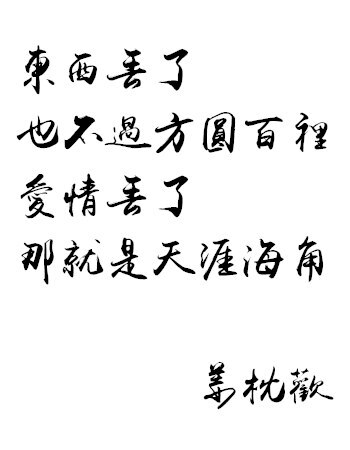 東西丟了
也不過方圓百裡
愛情丟了
那就是天涯海角
姜枕歡